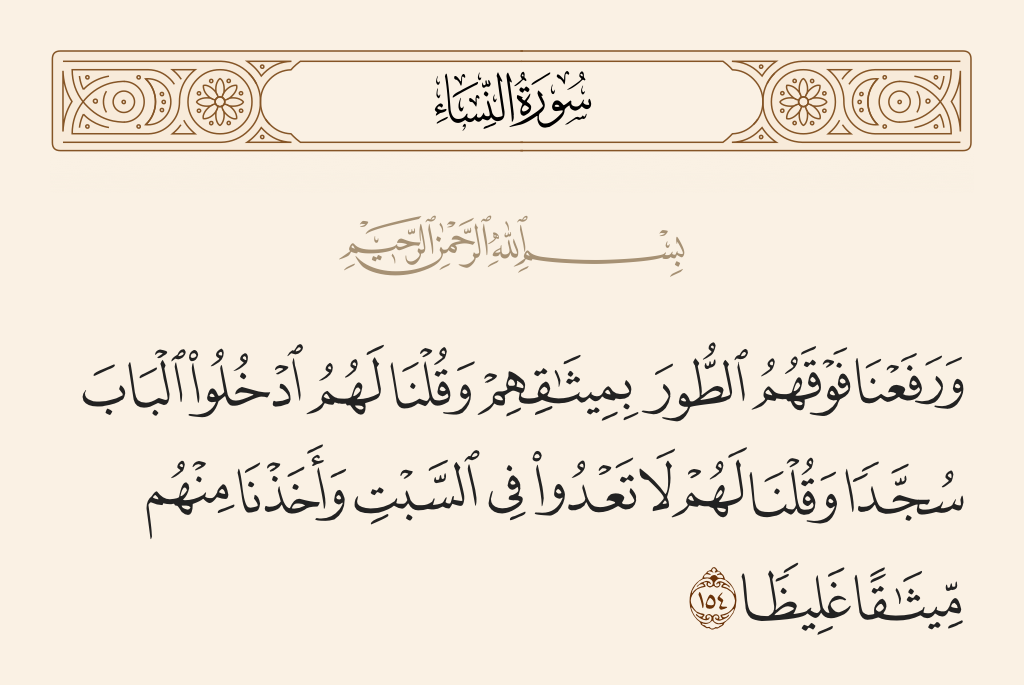 سُورَةُ النِّسَاءِ
بِسْمِ ٱللَّهِ ٱلرَّحْمَٰنِ ٱلرَّحِيمِ
وَرَفَعْنَا فَوْقَهُمُ ٱلطُّورَ بِمِيثَٰقِهِمْ وَقُلْنَا لَهُمُ ٱدْخُلُوا۟ ٱلْبَابَ
سُجَّدًا وَقُلْنَا لَهُمْ لَا تَعْدُوا۟ فِى ٱلسَّبْتِ وَأَخَذْنَا مِنْهُم
مِّيثَٰقًا غَلِيظًا ١٥٤